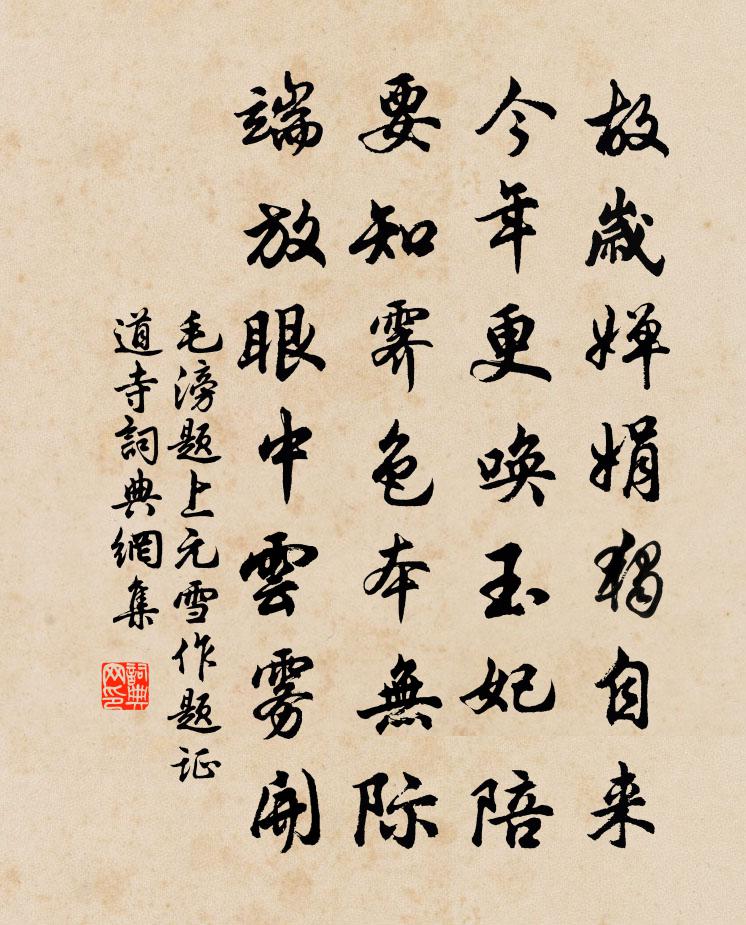 故歲嬋娟獨自来
今年更喚玉妃陪
要知霽色本無際
端放眼中雲雾開
毛滂题上元雪作题证
道寺詞典網集
詞典网印